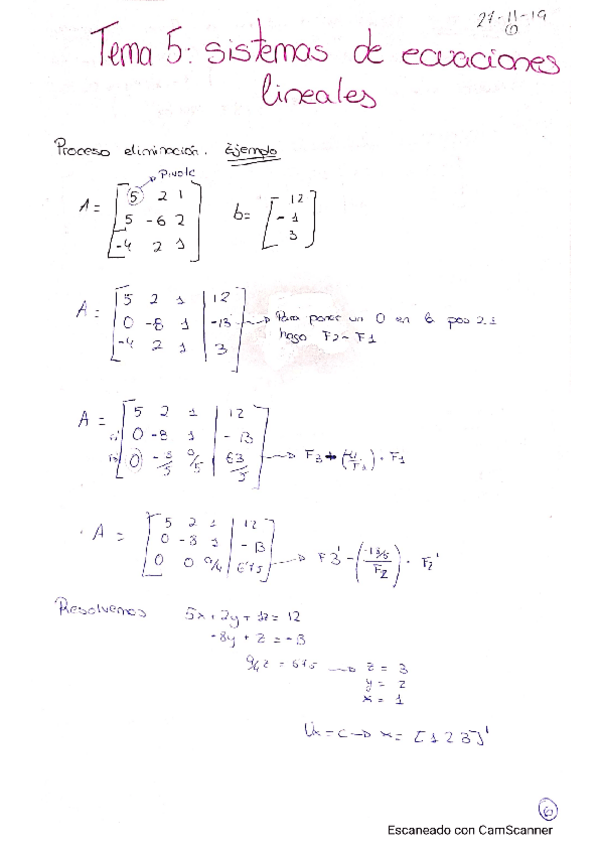 27-11-19
①
Tema 5: sistemas de ecuaciones
lineales
Proceso eliminación. Ejemplo
Pivote
A = [5 2 1
5 -6 2
-4 2 1]
b = [12
-1
3]
A = [5 2 1 | 12
0 -8 1 | -13
-4 2 1 | 3]
→ Para poner un 0 en la pos 2.1
hago F2 - F1
A = [5 2 1 | 12
0 -8 1 | -13
0 9/5 | 63/5]
→ F3 · F1
A = [5 2 1 | 12
0 -8 1 | -13
0 0 9/4 | 6'75]
→ F3' - · F2'
Resolvemos 5x + 2y + 1z = 12
-8y + z = -13
9/4 z = 6'75 → z = 3
y = 2
x = 1
Ux = c → x = [1 2 3]'
⑥
Escaneado con CamScanner